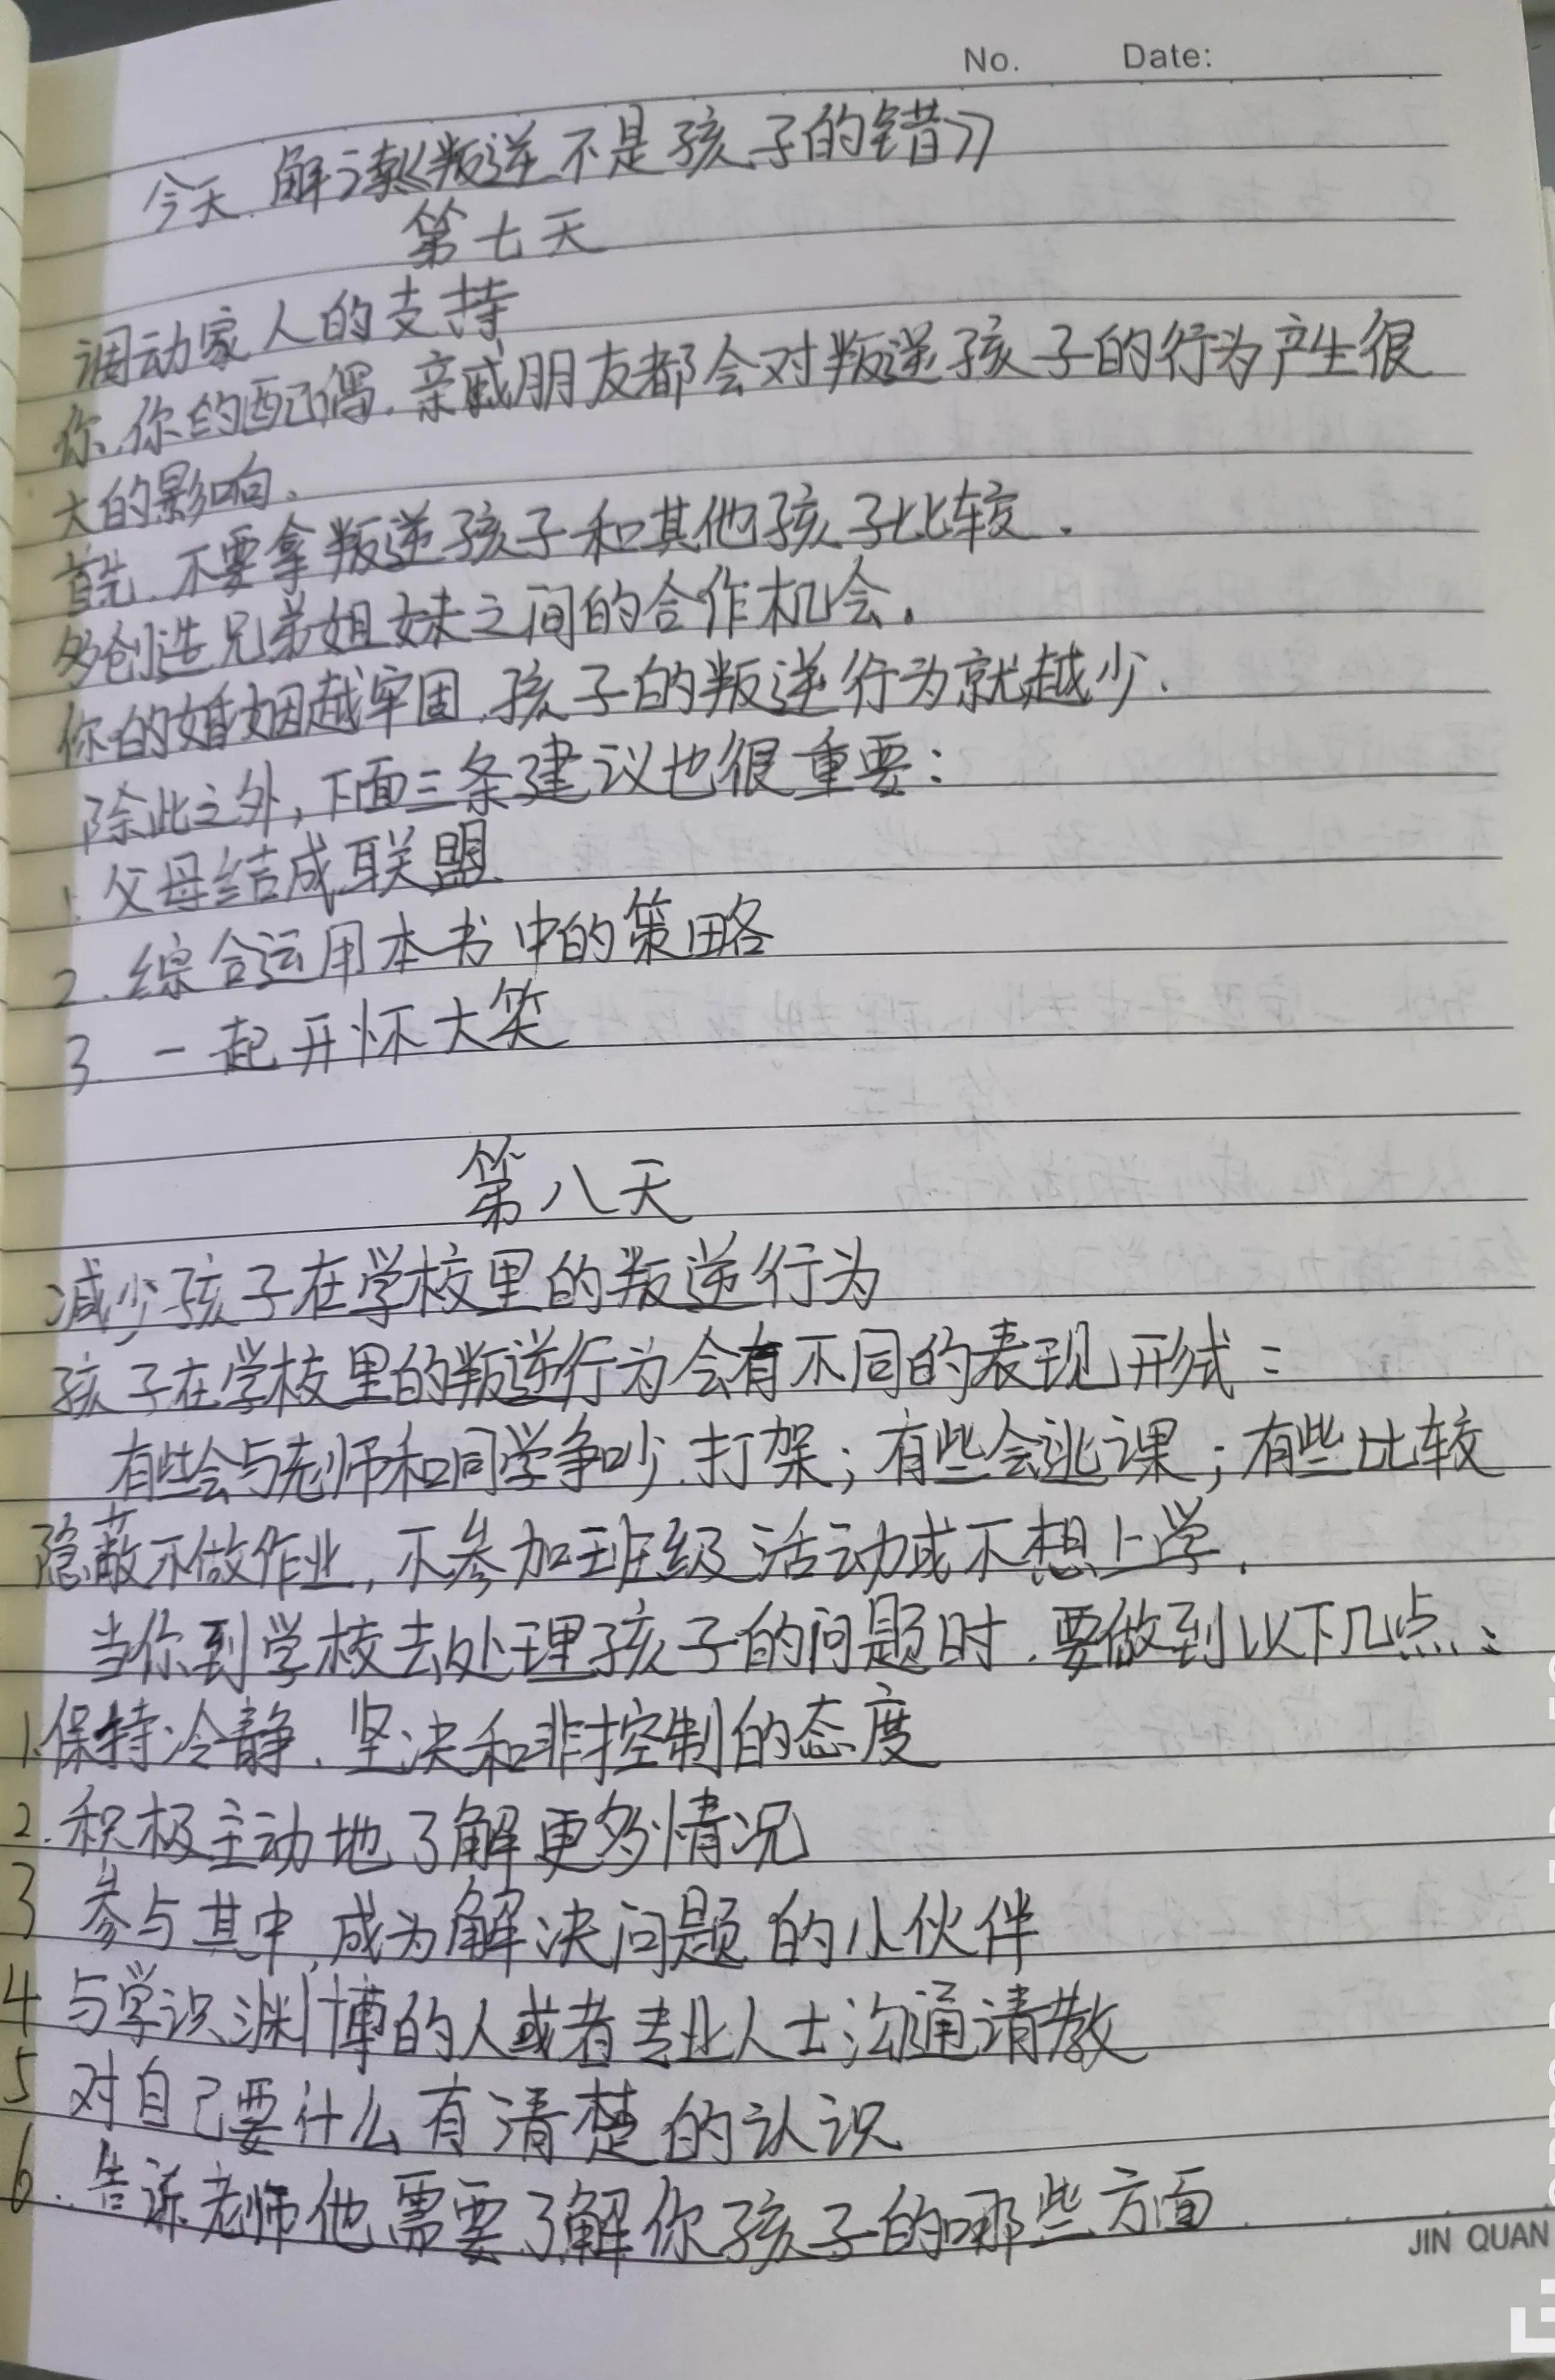 No. Date:
今天.解读《叛逆不是孩子的错》
第七天
调动家人的支持
你.你的配偶.亲戚朋友都会对叛逆孩子的行为产生很
大的影响.
首先.不要拿叛逆孩子和其他孩子比较.
多创造兄弟姐妹之间的合作机会.
你的婚姻越牢固.孩子的叛逆行为就越少.
除此之外,下面三条建议也很重要:
1.父母结成联盟
2.综合运用本书中的策略
3.一起开怀大笑
第八天
减少孩子在学校里的叛逆行为
孩子在学校里的叛逆行为会有不同的表现形式:
有些会与老师和同学争吵.打架;有些会逃课;有些比较
隐蔽不做作业,不参加班级活动或不想上学.
当你到学校去处理孩子的问题时.要做到以下几点:
1.保持冷静.坚决和非控制的态度
2.积极主动地了解更多情况
3 参与其中,成为解决问题的小伙伴
4 与学识渊博的人或者专业人士沟通请教
5 对自己要什么有清楚的认识
6.告诉老师他需要了解你孩子的哪些方面.
JIN QUAN